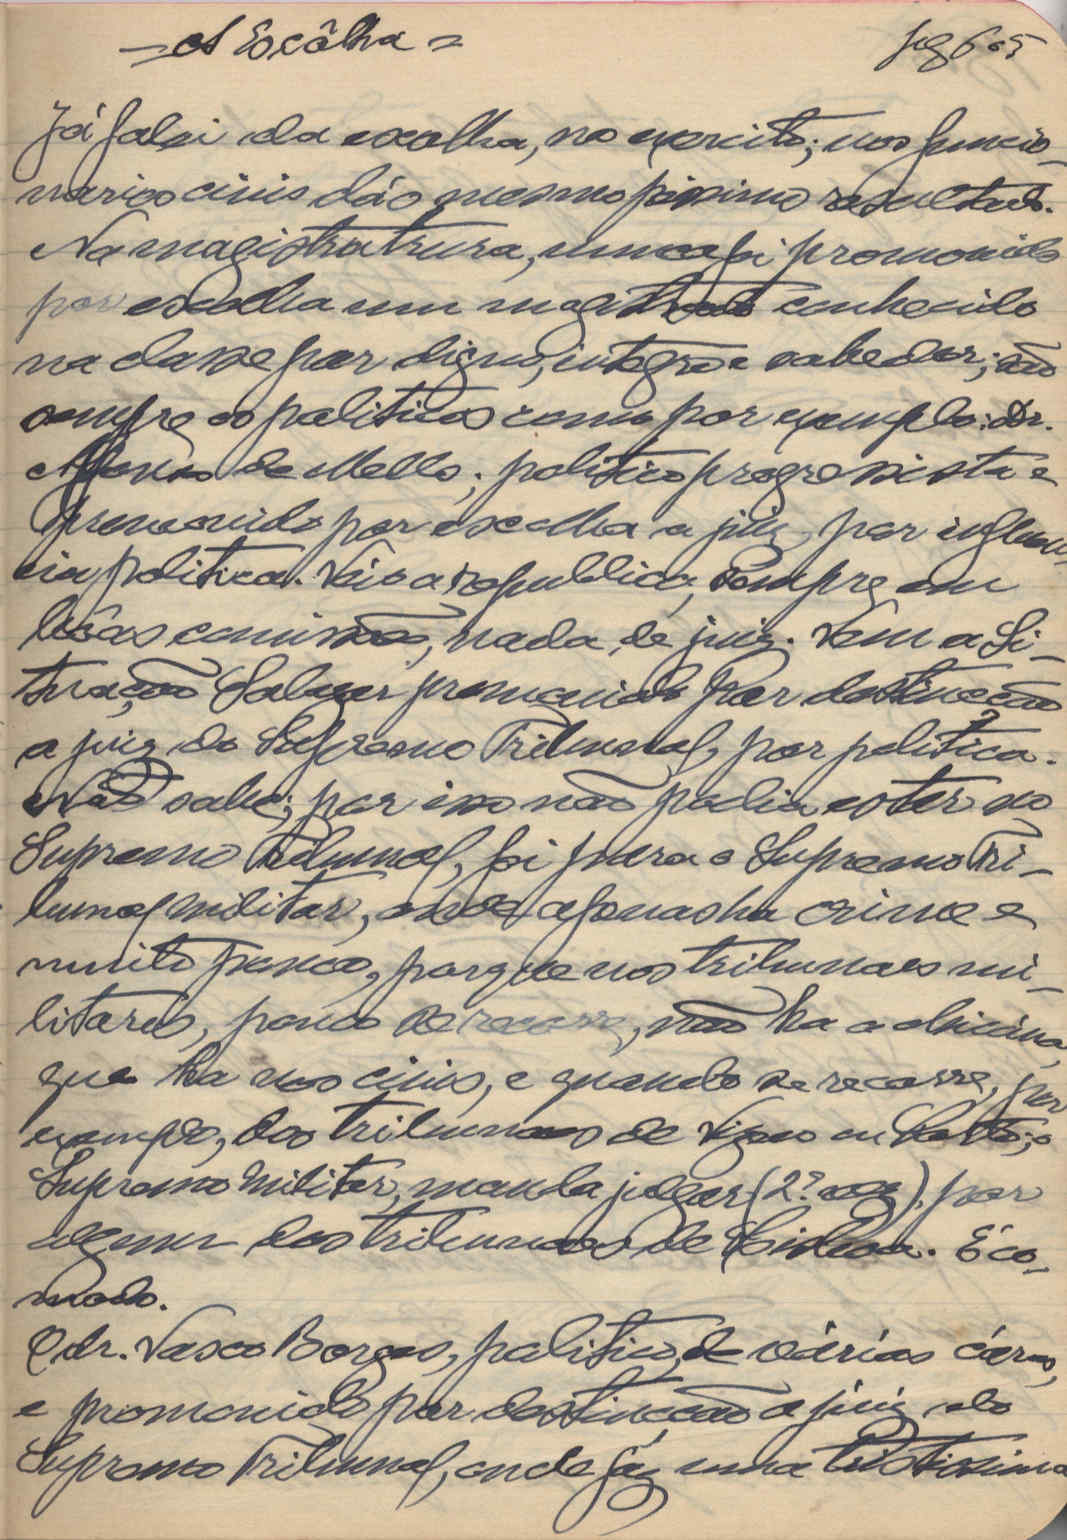 = A Escôlha =
Já falei da escolha, no exercito; nos funcio-
narios civis dá o mesmo pessimo resultado.
Na magistratrura, nunca foi promovido
por escolha um magistrado conhecido
na classe por digno, integro e sabedor; são
sempre os politicos como por exemplo: Dr.
Affonso de Mello; politico progressista e
promovido por escolha a juiz, por influen-
cia politica. Veio a republica, sempre em
bôas comissões, nada de juiz. Vem a Si-
tuação Salazar promovido por destincção
a juiz do Supremo Tribunal, por politica.
Não sabe; por isso não podia estar no
Supremo Tribunal, foi para o Supremo Tri-
bunal Militar, onde apenas ha crime e
muito pouco, porque nos tribunaes mi-
litares, pouco se recorre, não ha a chicana,
que ha nos civis, e quando se recorre, por
exemplo, dos tribunaes de Vizeu ou Porto; o
Supremo Militar, manda julgar (2ª vez), por
algum dos tribunaes de Lisboa. É co-
modo.
O dr. Vasco Borges, politico de várias côres,
e promovido por destincção a juiz do
Supremo Tribunal, onde fáz uma tristissima